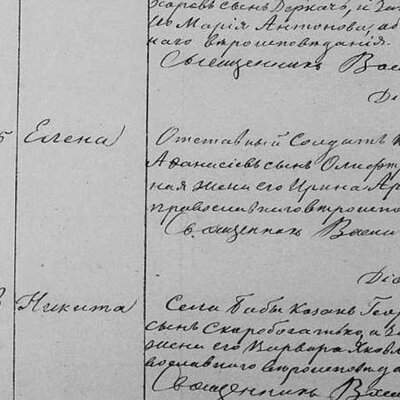 Марія Антонова, об
наго вѣроисповѣданія.
Священникъ Васи
5 Елена
Отставный Солдатъ
Аѳанасіевъ сынъ
ная жена его Ирина
православнаго вѣроиспо
Священникъ Васи
Никита
Села Бабы Козакъ Геор
сынъ Скоробогатько, и за
жена его Варвара Яковл
вославнаго вѣроисповѣда
Священникъ Васи